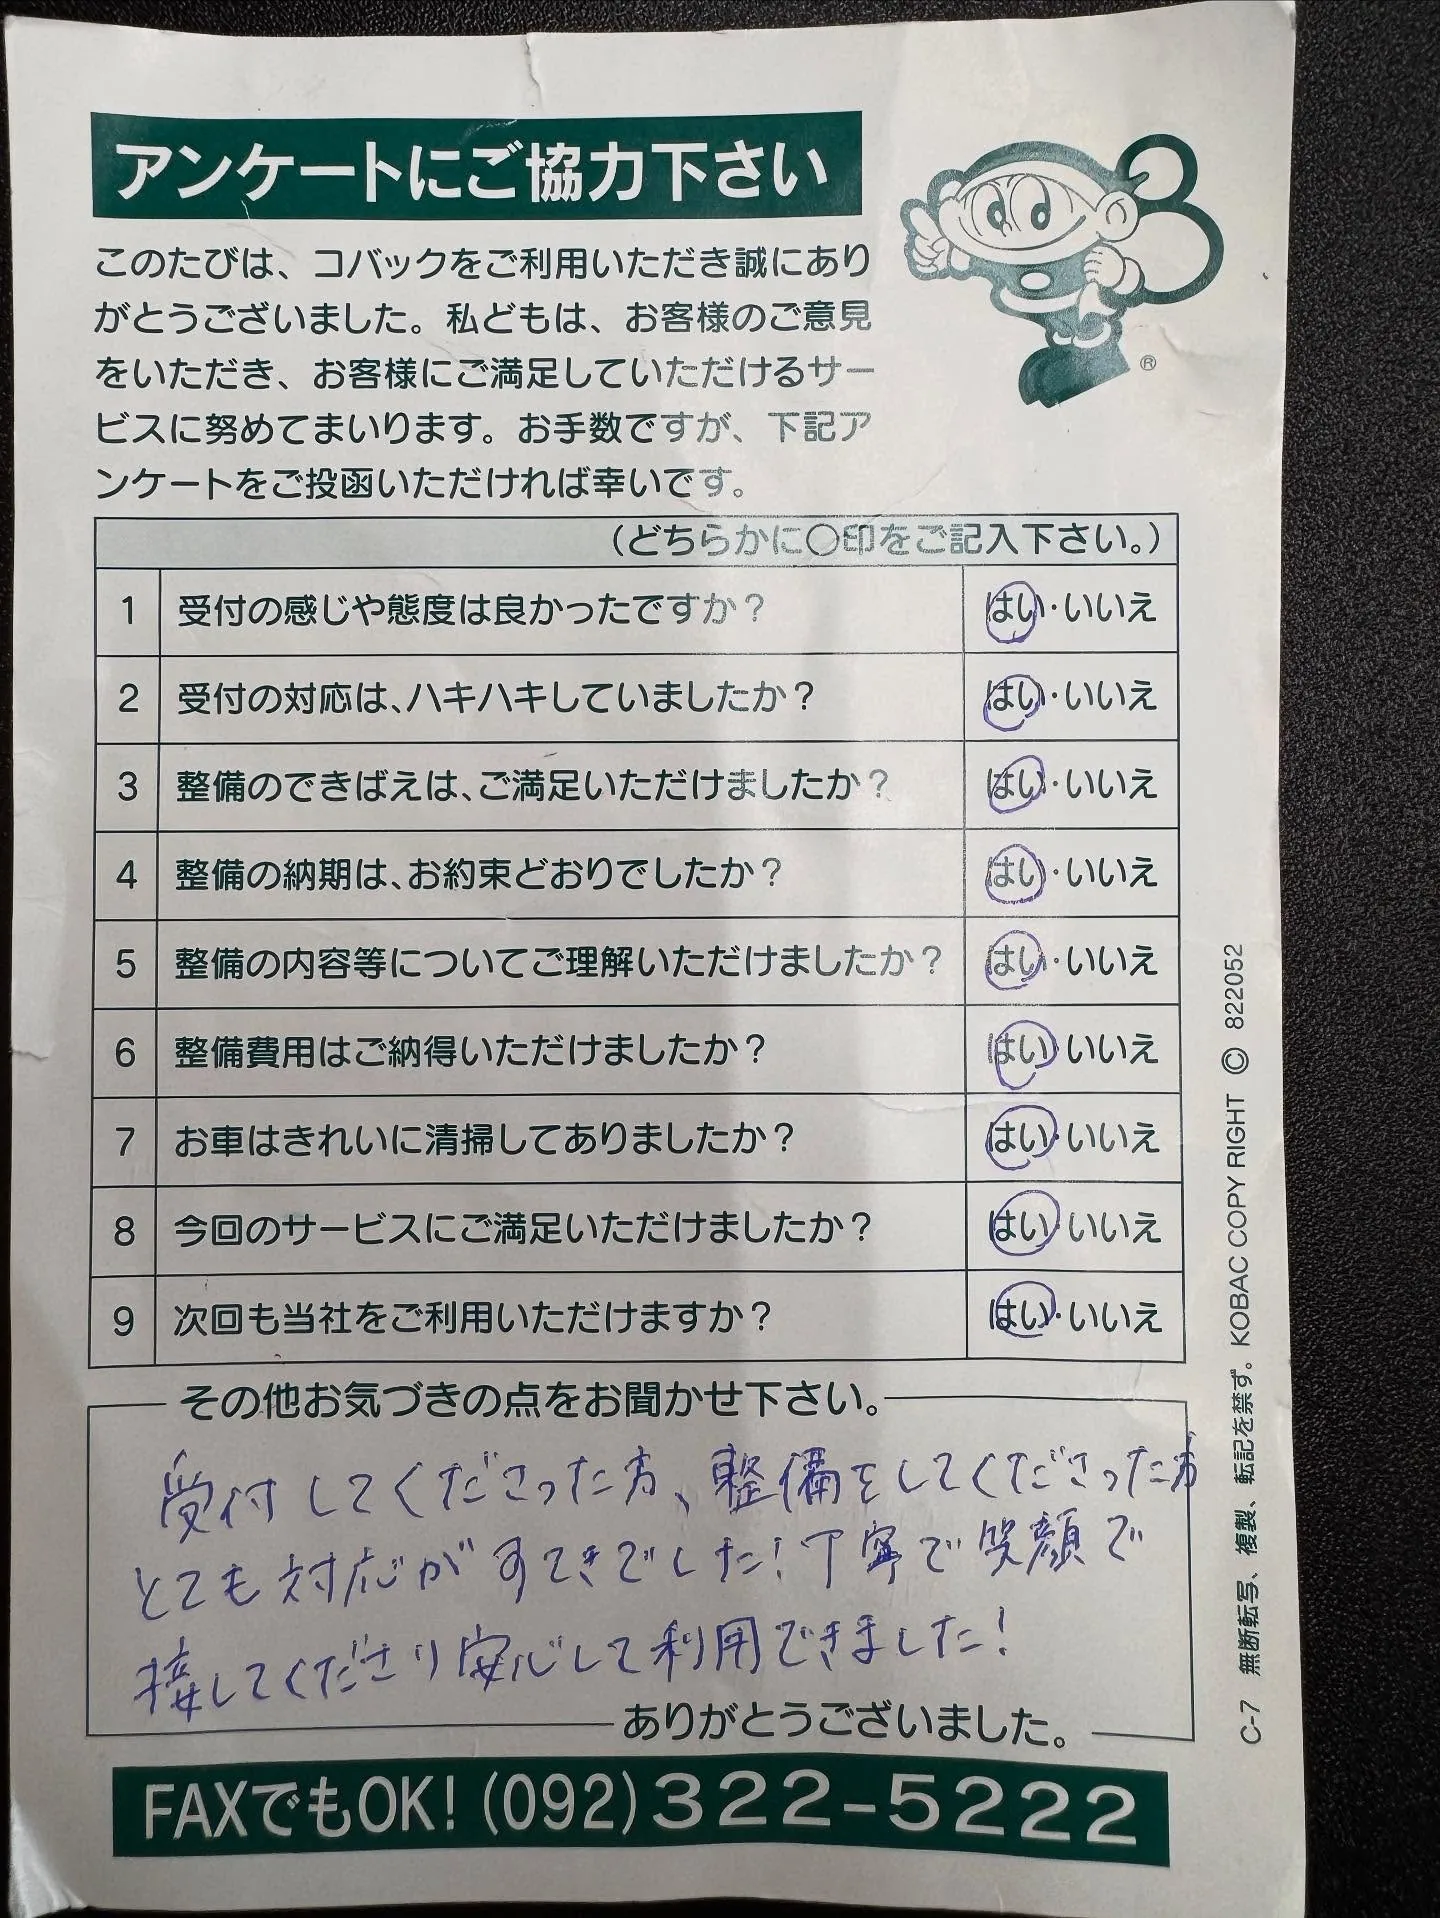 アンケートにご協力下さい
このたびは、コバックをご利用いただき誠にあり
がとうございました。私どもは、お客様のご意見
をいただき、お客様にご満足していただけるサー
ビスに努めてまいります。お手数ですが、下記ア
ンケートをご投函いただければ幸いです。
®
(どちらかに○印をご記入下さい。)
1 受付の感じや態度は良かったですか? はい・いいえ
2 受付の対応は、ハキハキしていましたか? はい・いいえ
3 整備のできばえは、ご満足いただけましたか? はい・いいえ
4 整備の納期は、お約束どおりでしたか? はい・いいえ
5 整備の内容等についてご理解いただけましたか? はい・いいえ
6 整備費用はご納得いただけましたか? はい・いいえ
7 お車はきれいに清掃してありましたか? はい・いいえ
8 今回のサービスにご満足いただけましたか? はい・いいえ
9 次回も当社をご利用いただけますか? はい・いいえ
その他お気づきの点をお聞かせ下さい。
受付してくださった方、整備をしてくださった方
とても対応がすてきでした!丁寧で笑顔で
接してくださり安心して利用できました!
ありがとうございました。
FAXでもOK!(092)322-5222
C-7 無断転写、複製、転記を禁ず。KOBAC COPY RIGHT © 822052